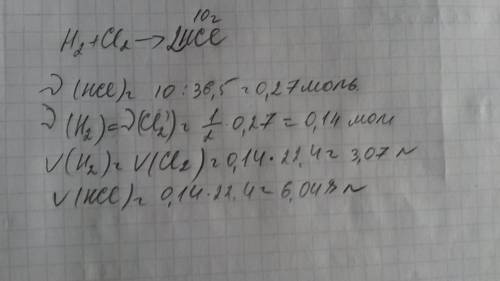 10г
H₂+Cl₂→2HCl
ν(HCl)= 10:36,5=0,27моль.
ν(H₂)=ν(Cl₂)= 1/2·0,27=0,14мол
V(H₂)=V(Cl₂)=0,14·22,4=3,07л
V(HCl)=0,14·22,4=6,048л